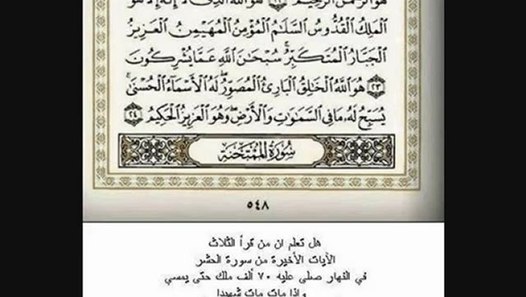 هُوَ الرَّحْمَنُ الرَّحِيمُ ٢٢ هُوَ اللَّهُ الَّذِي لَا إِلَهَ إِلَّا هُوَ
الْمَلِكُ الْقُدُّوسُ السَّلَامُ الْمُؤْمِنُ الْمُهَيْمِنُ الْعَزِيزُ
الْجَبَّارُ الْمُتَكَبِّرُ سُبْحَانَ اللَّهِ عَمَّا يُشْرِكُونَ
٢٣ هُوَ اللَّهُ الْخَالِقُ الْبَارِئُ الْمُصَوِّرُ لَهُ الْأَسْمَاءُ الْحُسْنَى
يُسَبِّحُ لَهُ مَا فِي السَّمَاوَاتِ وَالْأَرْضِ وَهُوَ الْعَزِيزُ الْحَكِيمُ ٢٤
سُورَةُ الْمُمْتَحَنَةِ
٥٤٨
هل تعلم ان من قرأ الثلاث
الآيات الأخيرة من سورة الحشر
في النهار صلى عليه ٧٠ ألف ملك حتى يمسي
وإذا مات مات شهيدا